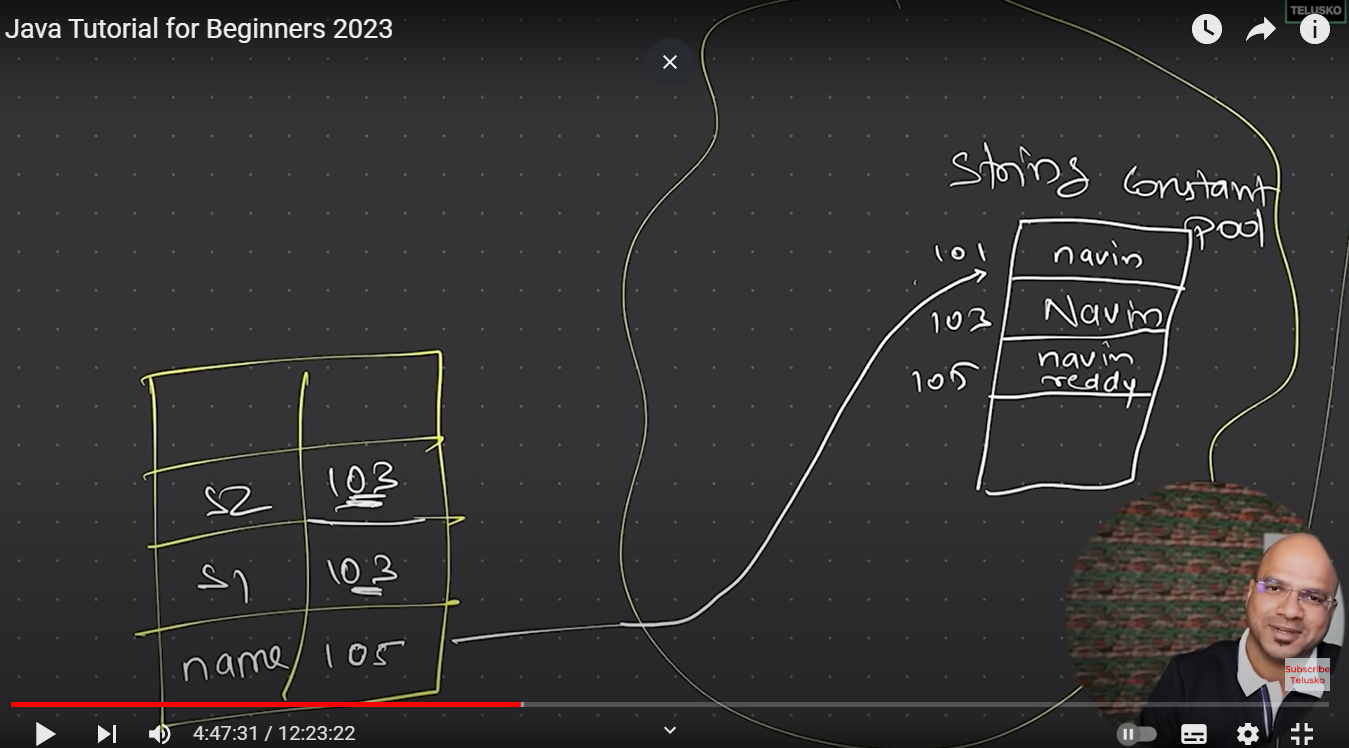 Java Tutorial for Beginners 2023
TELUSKO
String Constant
pool
101 navin
103 Navin
105 navin
reddy
S2 103
S1 103
name 105
Subscribe
Telusko
4:47:31 / 12:23:22